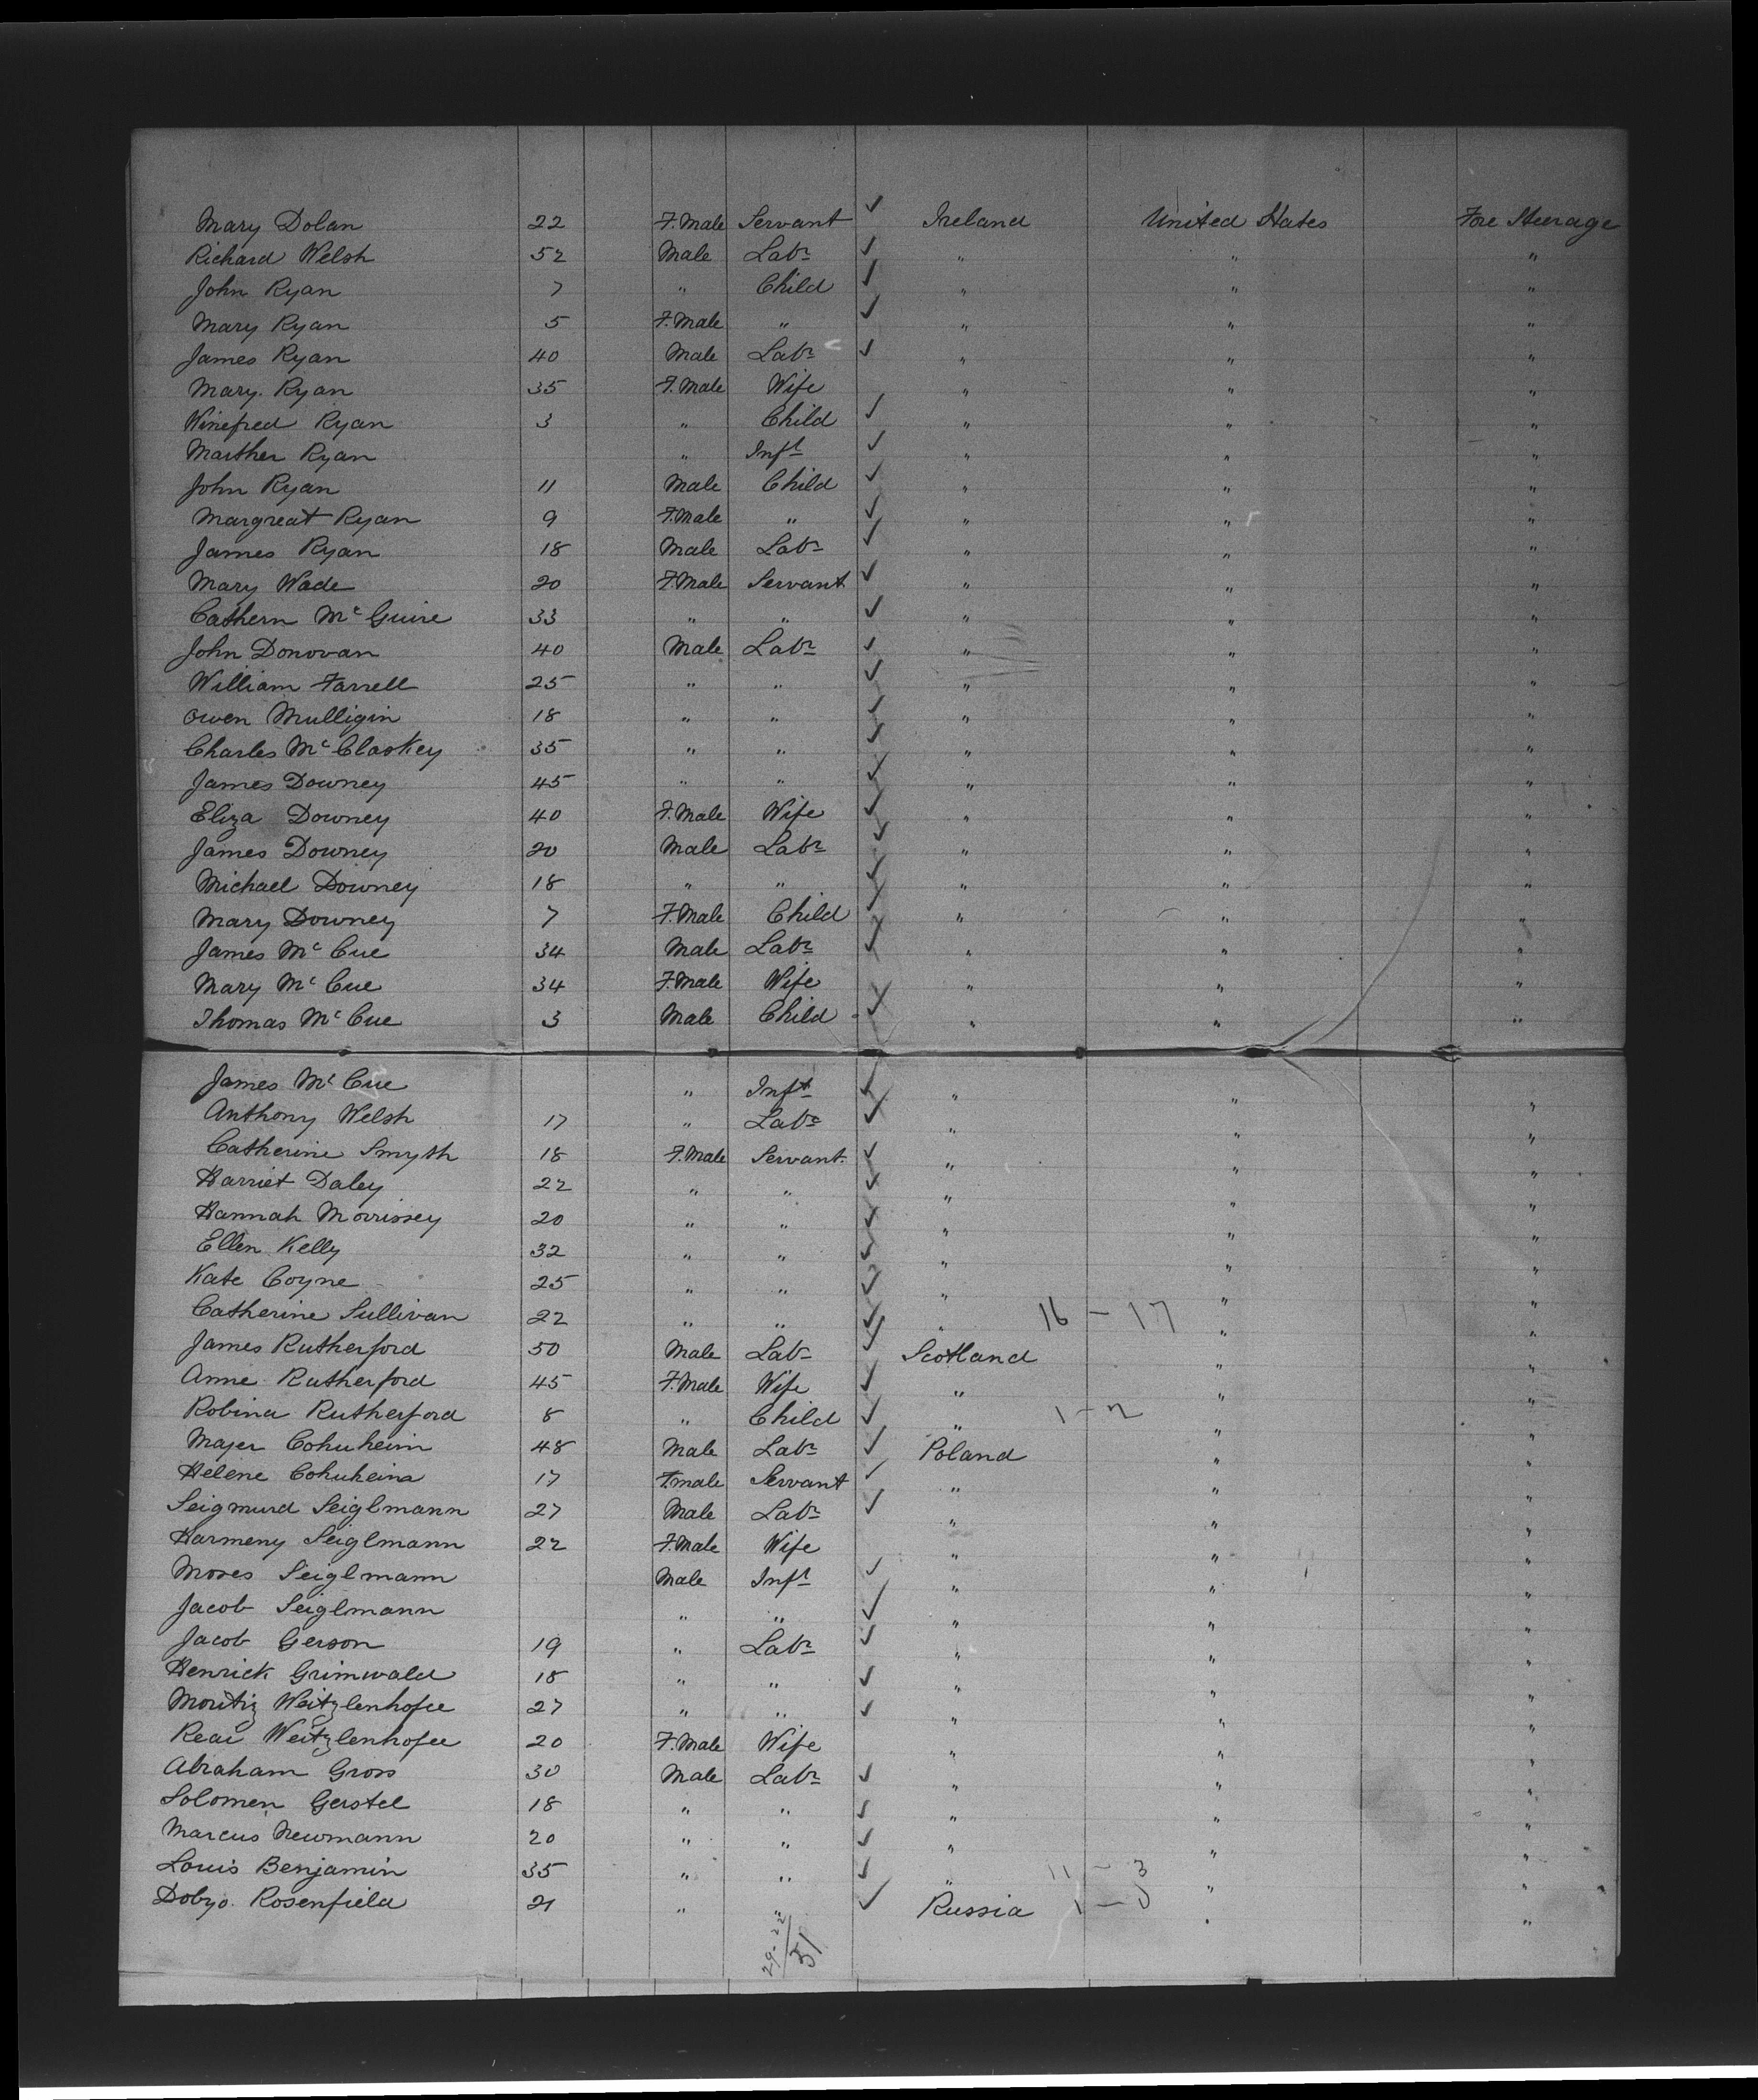 Mary Dolan 22 F.Male Servant ✓ Ireland United States Fore Steerage
Richard Welsh 52 Male Labr ✓ " " "
John Ryan 7 " Child ✓ " " "
Mary Ryan 5 F.Male " ✓ " " "
James Ryan 40 Male Labr ✓ " " "
Mary Ryan 35 F.Male Wife " " "
Winefred Ryan 3 " Child ✓ " " "
Marther Ryan " Inft ✓ " " "
John Ryan 11 Male Child ✓ " " "
Margreat Ryan 9 F.Male " ✓ " " "
James Ryan 18 Male Labr ✓ " " "
Mary Wade 20 F.Male Servant ✓ " " "
Cathern McGuire 33 " " ✓ " " "
John Donovan 40 Male Labr ✓ " " "
William Farrell 25 " " ✓ " " "
Owen Mulligin 18 " " ✓ " " "
Charles McClaskey 35 " " ✓ " " "
James Downey 45 " " ✓ " " "
Eliza Downey 40 F.Male Wife ✓ " " "
James Downey 20 Male Labr ✓ " " "
Michael Downey 18 " " ✓ " " "
Mary Downey 7 F.Male Child ✓ " " "
James McCue 34 Male Labr ✓ " " "
Mary McCue 34 F.Male Wife ✓ " " "
Thomas McCue 3 Male Child ✓ " " "
James McCue " Inft ✓ " " "
Anthony Welsh 17 " Labr ✓ " " "
Catherine Smyth 18 F.Male Servant ✓ " " "
Harriet Daley 22 " " ✓ " " "
Hannah Morrissey 20 " " ✓ " " "
Ellen Kelly 32 " " ✓ " " "
Kate Coyne 25 " " ✓ " " "
Catherine Sullivan 22 " " ✓ " 16 - 17 " "
James Rutherford 50 Male Labr ✓ Scotland " "
Anne Rutherford 45 F.Male Wife ✓ " " "
Robina Rutherford 8 " Child ✓ " 1 - 2 " "
Majer Cohuheim 48 Male Labr ✓ Poland " "
Helene Cohuheina 17 F.male Servant ✓ " " "
Seigmund Seiglmann 27 Male Labr ✓ " " "
Harmeny Seiglmann 22 F.Male Wife " " "
Moses Seiglmann Male Inft ✓ " " "
Jacob Seiglmann " " ✓ " " "
Jacob Gerson 19 " Labr ✓ " " "
Henrick Grimwald 18 " " ✓ " " "
Moritiz Weitzlenhofee 27 " " ✓ " " "
Reai Weitzlenhofee 20 F.Male Wife " " "
Abraham Gross 30 Male Labr ✓ " " "
Solomen Gerstel 18 " " ✓ " " "
Marcus Newmann 20 " " ✓ " " "
Louis Benjamin 35 " " ✓ " 11 - 3 " "
Dobyo. Rosenfield 21 " " ✓ Russia 1 - 0 " "
29-22/51